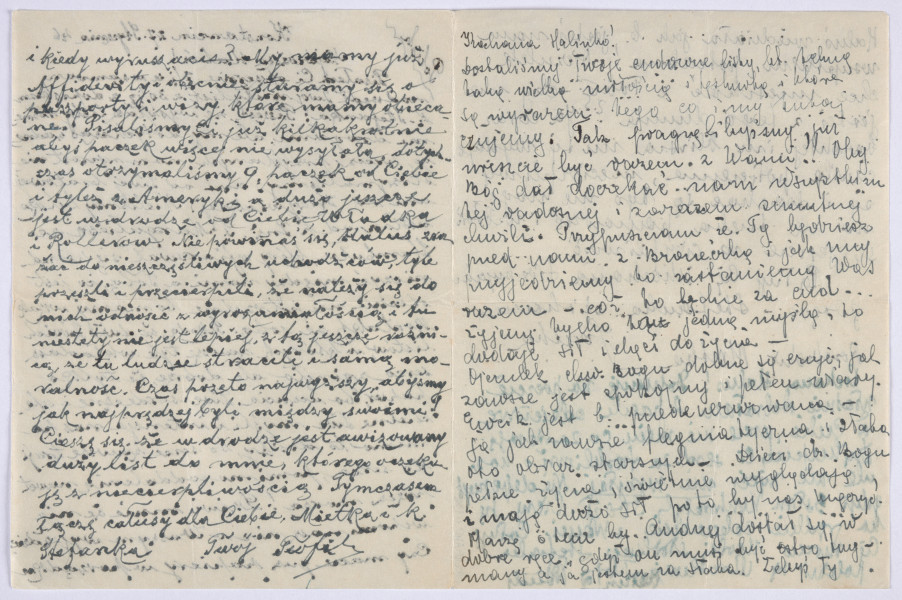 i kiedy wyruszacie? My mamy już
Affidavity i obecnie staramy się o
paszporty i wizy, które mamy obieca-
ne. Pisaliśmy już kilkakrotnie
abyś paczek więcej nie wysyłała, dotych-
czas otrzymaliśmy 9 paczek od Ciebie
i tyleż z Ameryki, a dużo jeszcze
jest w drodze od Ciebie, Władka
i Rollerów. Nie powinnaś się, zra-
żać do nieszczęśliwych uchodźców, tyle
przeszli i przecierpieli, że należy się do
nich odnosić z wyrozumiałością i tu
niestety nie jest lepiej, z tą jeszcze różni-
cą, że tu ludzie stracili i samą mo-
ralność. Czas przeto najwyższy, abyśmy
jak najprędzej byli między swoimi.
Cieszę się, że w drodze jest awizowany
duży list do mnie, którego oczeku-
ję z niecierpliwością. Tymczasem
łączę całusy dla Ciebie, Mietka i k.
Stefanka Twój Teofil
Kochana Halinko!
Dostaliśmy Twoje cudowne listy,
taką wielką miłością i tęsknotą i które
są wyrazem tego co i my tutaj
czujemy. Tak pragnęlibyśmy już
wreszcie być razem z Wami. Oby
Bóg dał doczekać nam wszystkim
tej radosnej i zarazem smutnej
chwili. Przypuszczam że Ty będziesz
przed nami z Broneczką i jak my
przyjedziemy to zastaniemy Was
razem – co to będzie za cud...
żyjemy tylko tą jedną myślą, to
dodaje sił i chęci do życia –
chw. Bogu dobrze się czuje, jak
zawsze jest spokojny i pełen wiary.
jest b. przedenerwowana –
Ja jak zawsze flegmatyczna i słaba
oto obraz starszych – Dzieci dz. Bogu
pełne życia, świetnie wyglądają
i mają dużo sił po to by nas męczyć.
Marzę o tem by Andrzej dostał się w
dobre ręce, gdyż on musi być ostro trzy-
many a ja jestem za słaba. Ty